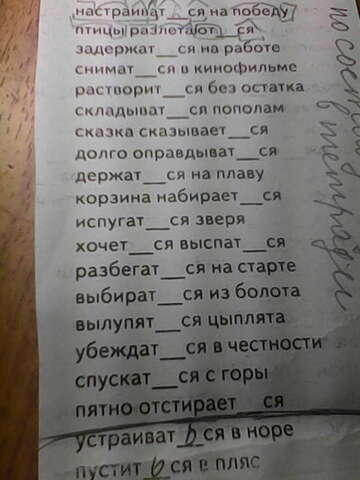 настраиват__ся на победу
птицы разлетают__ся
задержат__ся на работе
снимат__ся в кинофильме
растворит__ся без остатка
складыват__ся пополам
сказка сказывает__ся
долго оправдыват__ся
держат__ся на плаву
корзина набирает__ся
испугат__ся зверя
хочет__ся выспат__ся
разбегат__ся на старте
выбират__ся из болота
вылупят__ся цыплята
убеждат__ся в честности
спускат__ся с горы
пятно отстирает__ся
устраиват ь ся в норе
пустит ь ся в пляс
в тетради